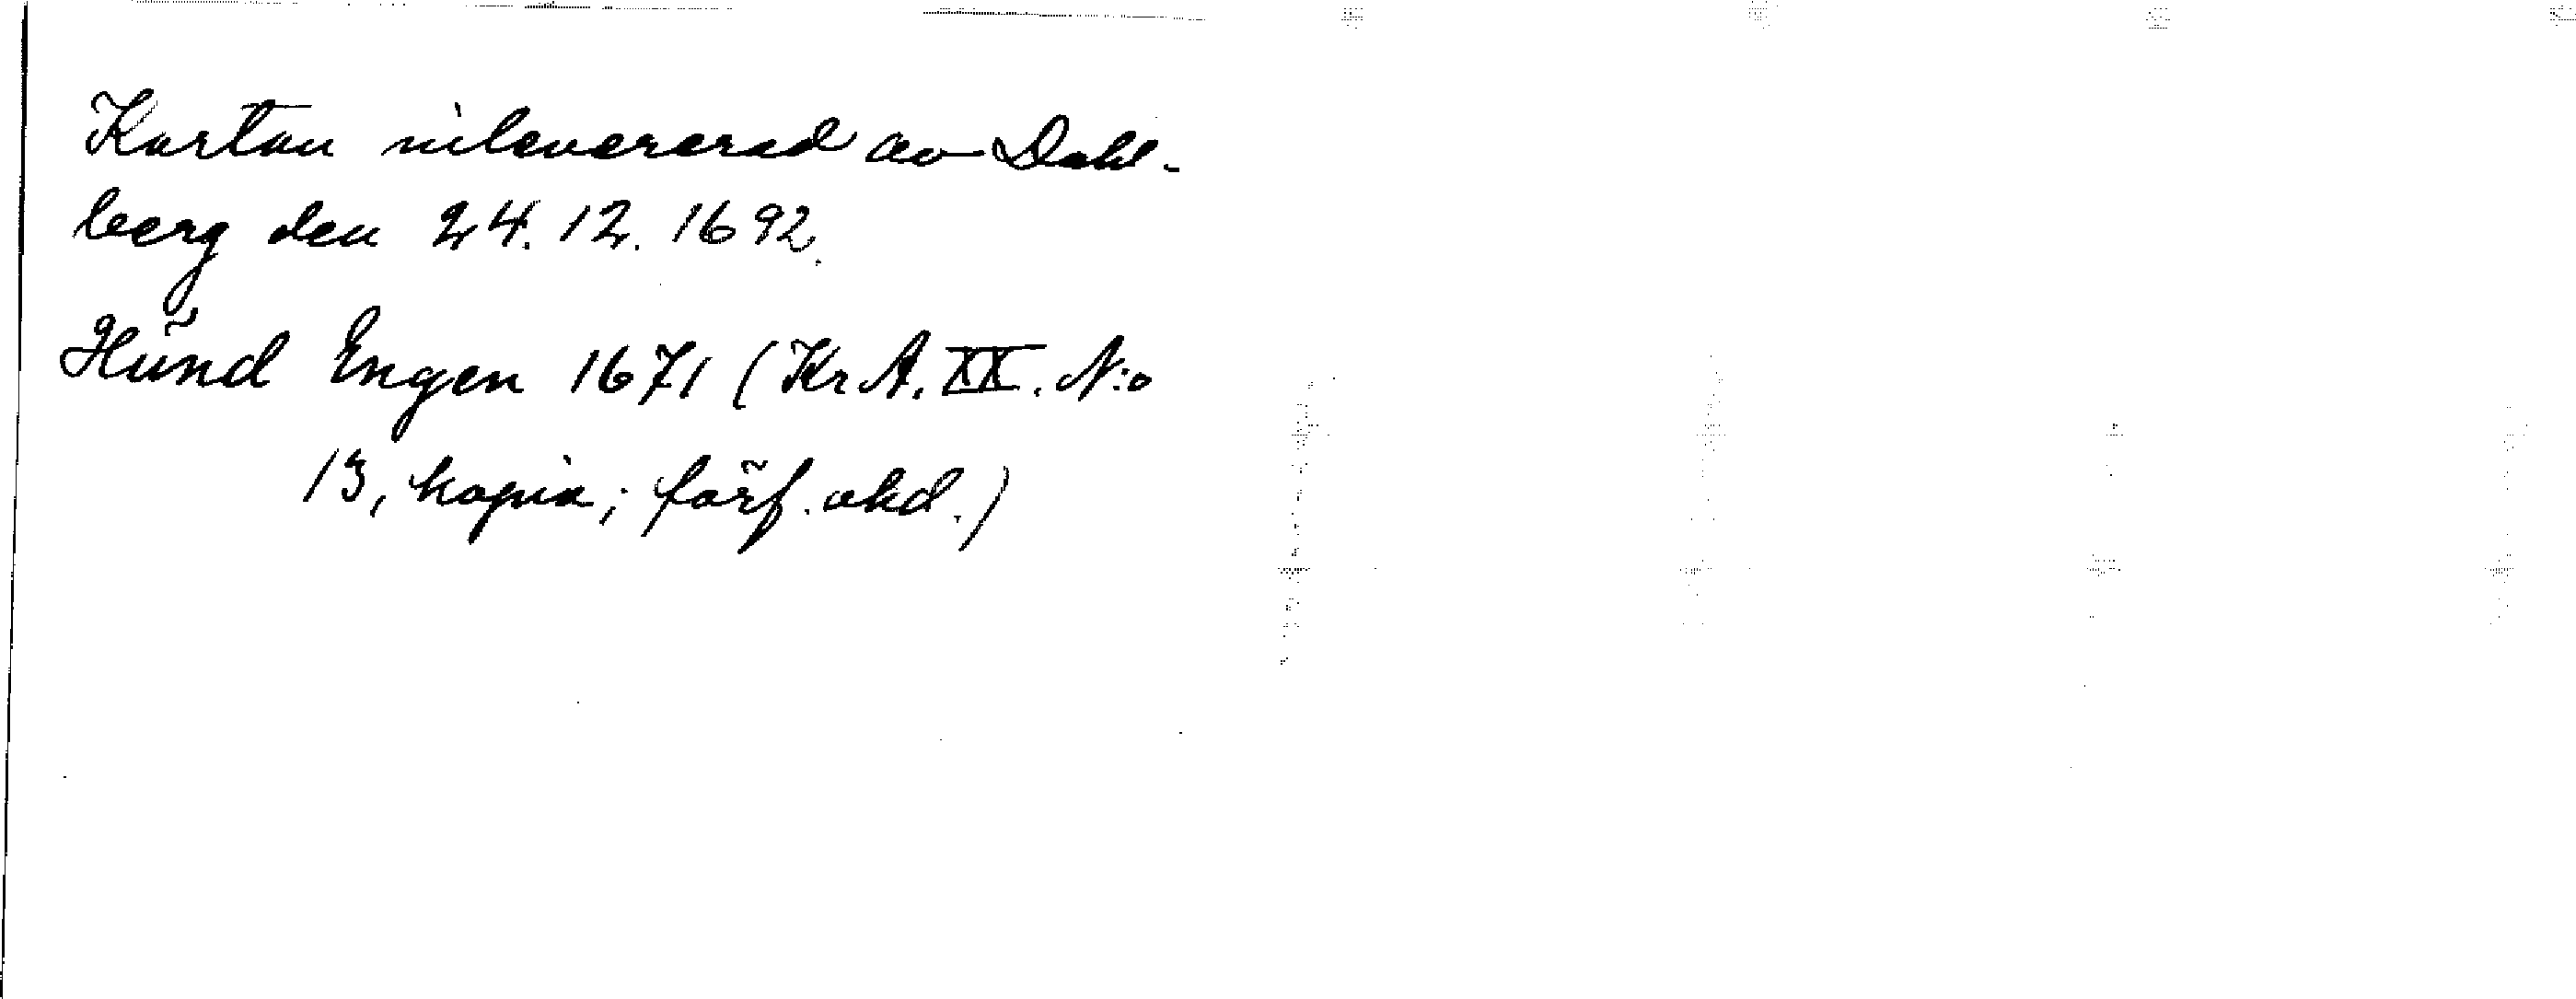 Kartan inlevererad av Dahl-
berg den 24.12.1692.
Hünd Engen 1671 (KrA. XX. N:o
13, kopia; förf. okd.)